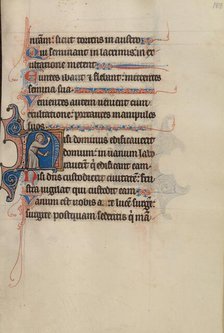 nitatem: sicut torrens in austro
Qui seminant in lacrimis: in ex
ultatione metent
Euntes ibant & flebant: mittentes
semina sua
Venientes autem uenient cum
exultatione: portantes manipulos
suos
Nisi dominus edificauerit
domum: in uanum labo
rauerunt q̇ edificant eam
Nisi dñs custodierit ciuitatem: fr̃
stra uigilat qui custodit eam
Vanum est uobis ante lucem surgere:
surgite postquam sederitis q̇ mã